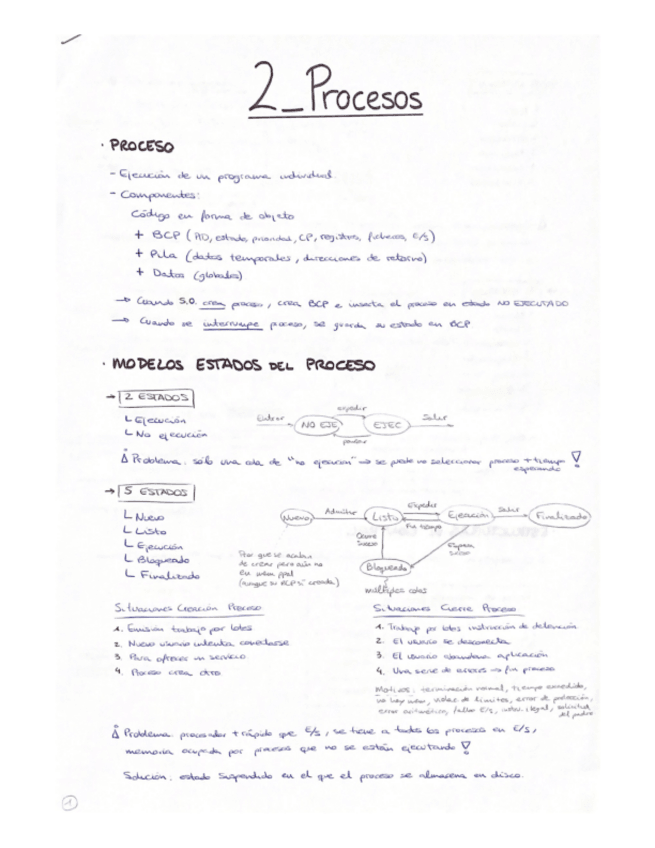 2_Procesos
· PROCESO
- Ejecución de un programa individual.
- Componentes:
Código en forma de objeto
+ BCP (AD, estado, prioridad, CP, registros, ficheros, E/S)
+ Pila (datos temporales, direcciones de retorno)
+ Datos (globales)
→ Cuando S.O. crea proceso, crea BCP e inserta el proceso en estado NO EJECUTADO
→ Cuando se interrumpe proceso, se guarda su estado en BCP
· MODELOS ESTADOS DEL PROCESO
→ 2 ESTADOS
Ejecución
No ejecución
Entrar
NO EJE
expedir
EJEC
Salir
pausar
Problema: sólo una cola de "no ejecución" → se puede no seleccionar proceso + tiempo
esperando
→ 5 ESTADOS
Nuevo
Listo
Ejecución
Bloqueado
Finalizado
Por que se acaban
de crear pero aún no
en mem ppal
(aunque su BCP sí creado)
Nuevo
Admitir
Listo
Expedir
Fin tiempo
Ejecución
Salir
Finalizado
Ocurre
suceso
Espera
suceso
Bloqueado
múltiples colas
Situaciones Creación Proceso
1. Emisión trabajo por lotes
2. Nuevo usuario intenta conectarse
3. Para ofrecer un servicio
4. Proceso crea otro
Situaciones Cierre Proceso
1. Trabajo por lotes instrucción de detención
2. El usuario se desconecta
3. El usuario abandona aplicación
4. Una serie de errores → fin proceso
Motivos: terminación normal, tiempo excedido,
no hay mem, violac. de límites, error de protección,
error aritmético, fallo E/S, instr. ilegal, solicitud
del padre
Problema: procesador + rápido que E/S, se tiene a todos los procesos en E/S,
memoria ocupada por procesos que no se están ejecutando
Solución: estado Suspendido en el que el proceso se almacena en disco.
1